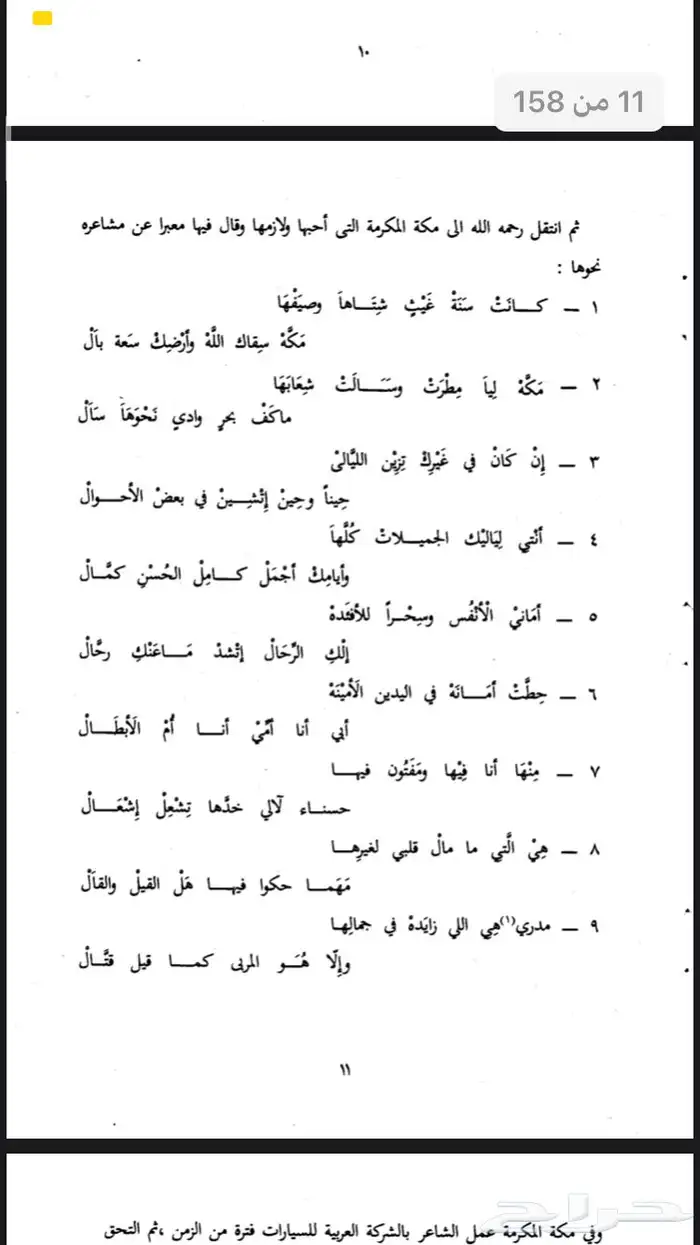 ١٠
11 من 158
ثم انتقل رحمه الله الى مكة المكرمة التى أحبها ولازمها وقال فيها معبرا عن مشاعره
نحوها :
١ ــ كــانَتْ سَنَةْ غَيْثٍ شِتَــاهاَ وصيَفْهَا
مَكَّهْ سِقاك اللَّهْ وأَرْضِكْ سَعة بآلْ
٢ ــ مَكَّهْ لِياَ مِطْرَتْ وسَــالَتْ شِعَابَهَا
ماكَفْ بحرٍ وادي نَحْوَهَا سَآلْ
٣ ــ إِنْ كَانْ في غَيْرِكْ تِزيِن الليَّالىْ
حِيناً وحِينْ إِتْشِــينْ في بعضْ الأحــوالْ
٤ ــ أنْتي لِيَاليْك الجميــلاتْ كُلَّهاَ
وأيامِكْ أجْمَلْ كــامِلْ الحُسْنِ كمَّــالْ
٥ ــ أمَانيْ الْأنْفُس وسِحْــراً للأفئدهْ
إلْكِ الرِّحَالْ إتْشدْ مَــاعَنْكِ رحَّالْ
٦ ــ حِطَّتْ أمَــانَهْ في اليدين الَأمْيَنَهْ
أبي أنا أمَّيْ أنــا أُمْ الَأبْطَــالْ
٧ ــ مِنْهَا أنا فِيْها ومَفَتُون فيهــا
حسنــاء لآلي خدَّها تِشْعِلْ إِشْعَــالْ
٨ ــ هِيْ الَّتي ما مالْ قلبي لغيرِهــا
مَهَمــا حكوا فيهــا هَلْ القيلْ والقاَلْ
٩ ــ مدري(١)هِي اللي زايَدهْ في جمالِهــا
وإلّا هُــو المربى كمــا قيل قتَّــالْ
١١
حراج
وفي مكة المكرمة عمل الشاعر بالشركة العربية للسيارات فترة من الزمن ،ثم التحق